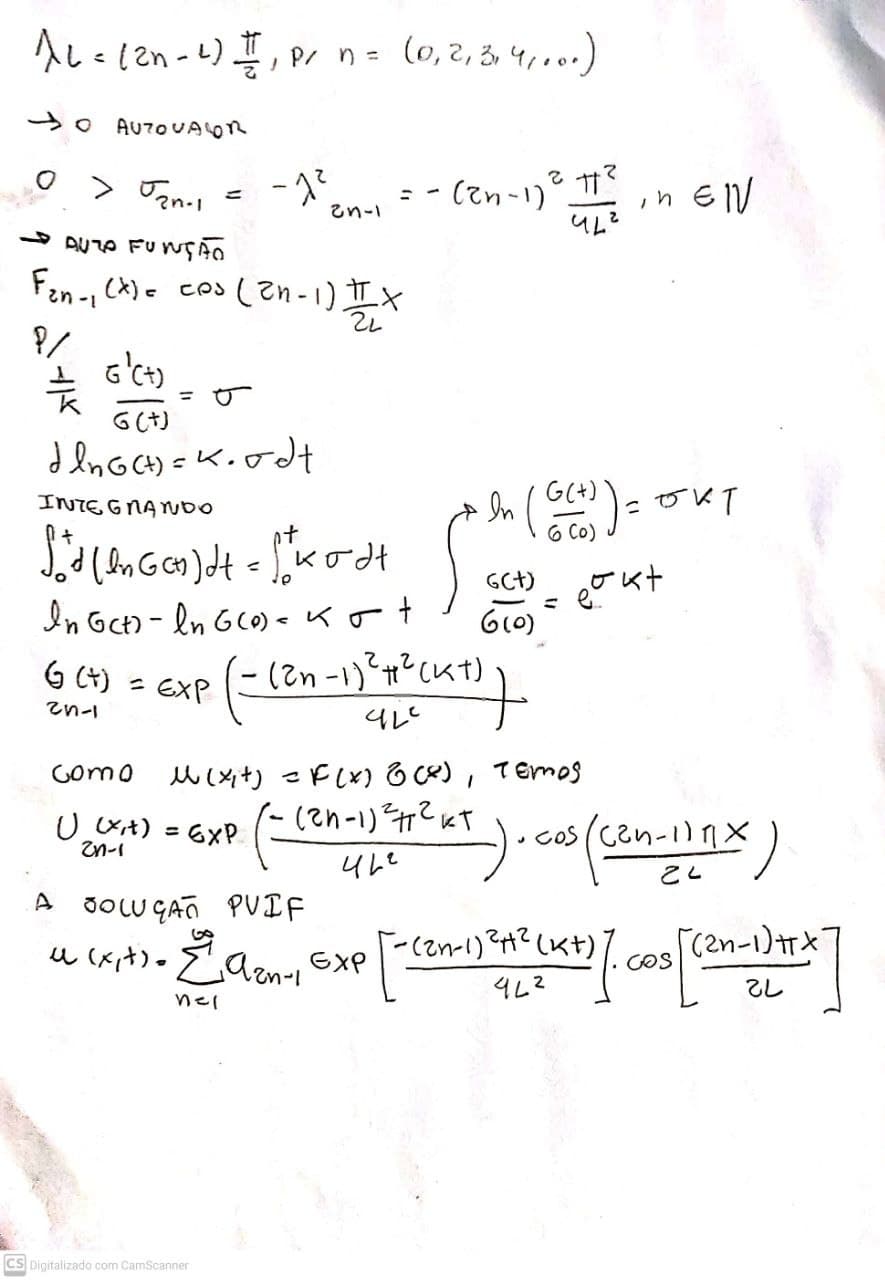 λL = (2n - L) π/2, p/ n = (0, 2, 3, 4, ...)
→ O AUTOVALOR
0 > σ_{2n-1} = -λ²_{2n-1} = -(2n-1)² π²/4L², n ∈ ℕ
→ AUTO FUNÇÃO
F_{2n-1}(x) = cos (2n-1) π/2L x
P/
1/K G'(t)/G(t) = σ
d ln G(t) = K.σ dt
INTEGRANDO
∫₀ᵗ d(ln G(t)) dt = ∫₀ᵗ K σ dt
ln G(t) - ln G(0) = K σ t
→ ln (G(t)/G(0)) = σ K T
G(t)/G(0) = e^{σKt}
G(t)_{2n-1} = EXP (-(2n-1)² π² (Kt) / 4L²)
COMO u(x,t) = F(x) G(t), TEMOS
U_{2n-1}(x,t) = EXP (-(2n-1)² π² KT / 4L²) . cos ((2n-1) π X / 2L)
A SOLUÇÃO PVIF
u(x,t) = Σ_{n=1}^{∞} a_{2n-1} EXP [-(2n-1)² π² (Kt) / 4L²] . cos [(2n-1) π X / 2L]
CS Digitalizado com CamScanner